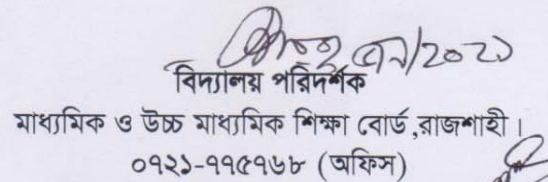 বিদ্যালয় পরিদর্শক
মাধ্যমিক ও উচ্চ মাধ্যমিক শিক্ষা বোর্ড,রাজশাহী।
০৭২১-৭৭৫৭৬৮ (অফিস)